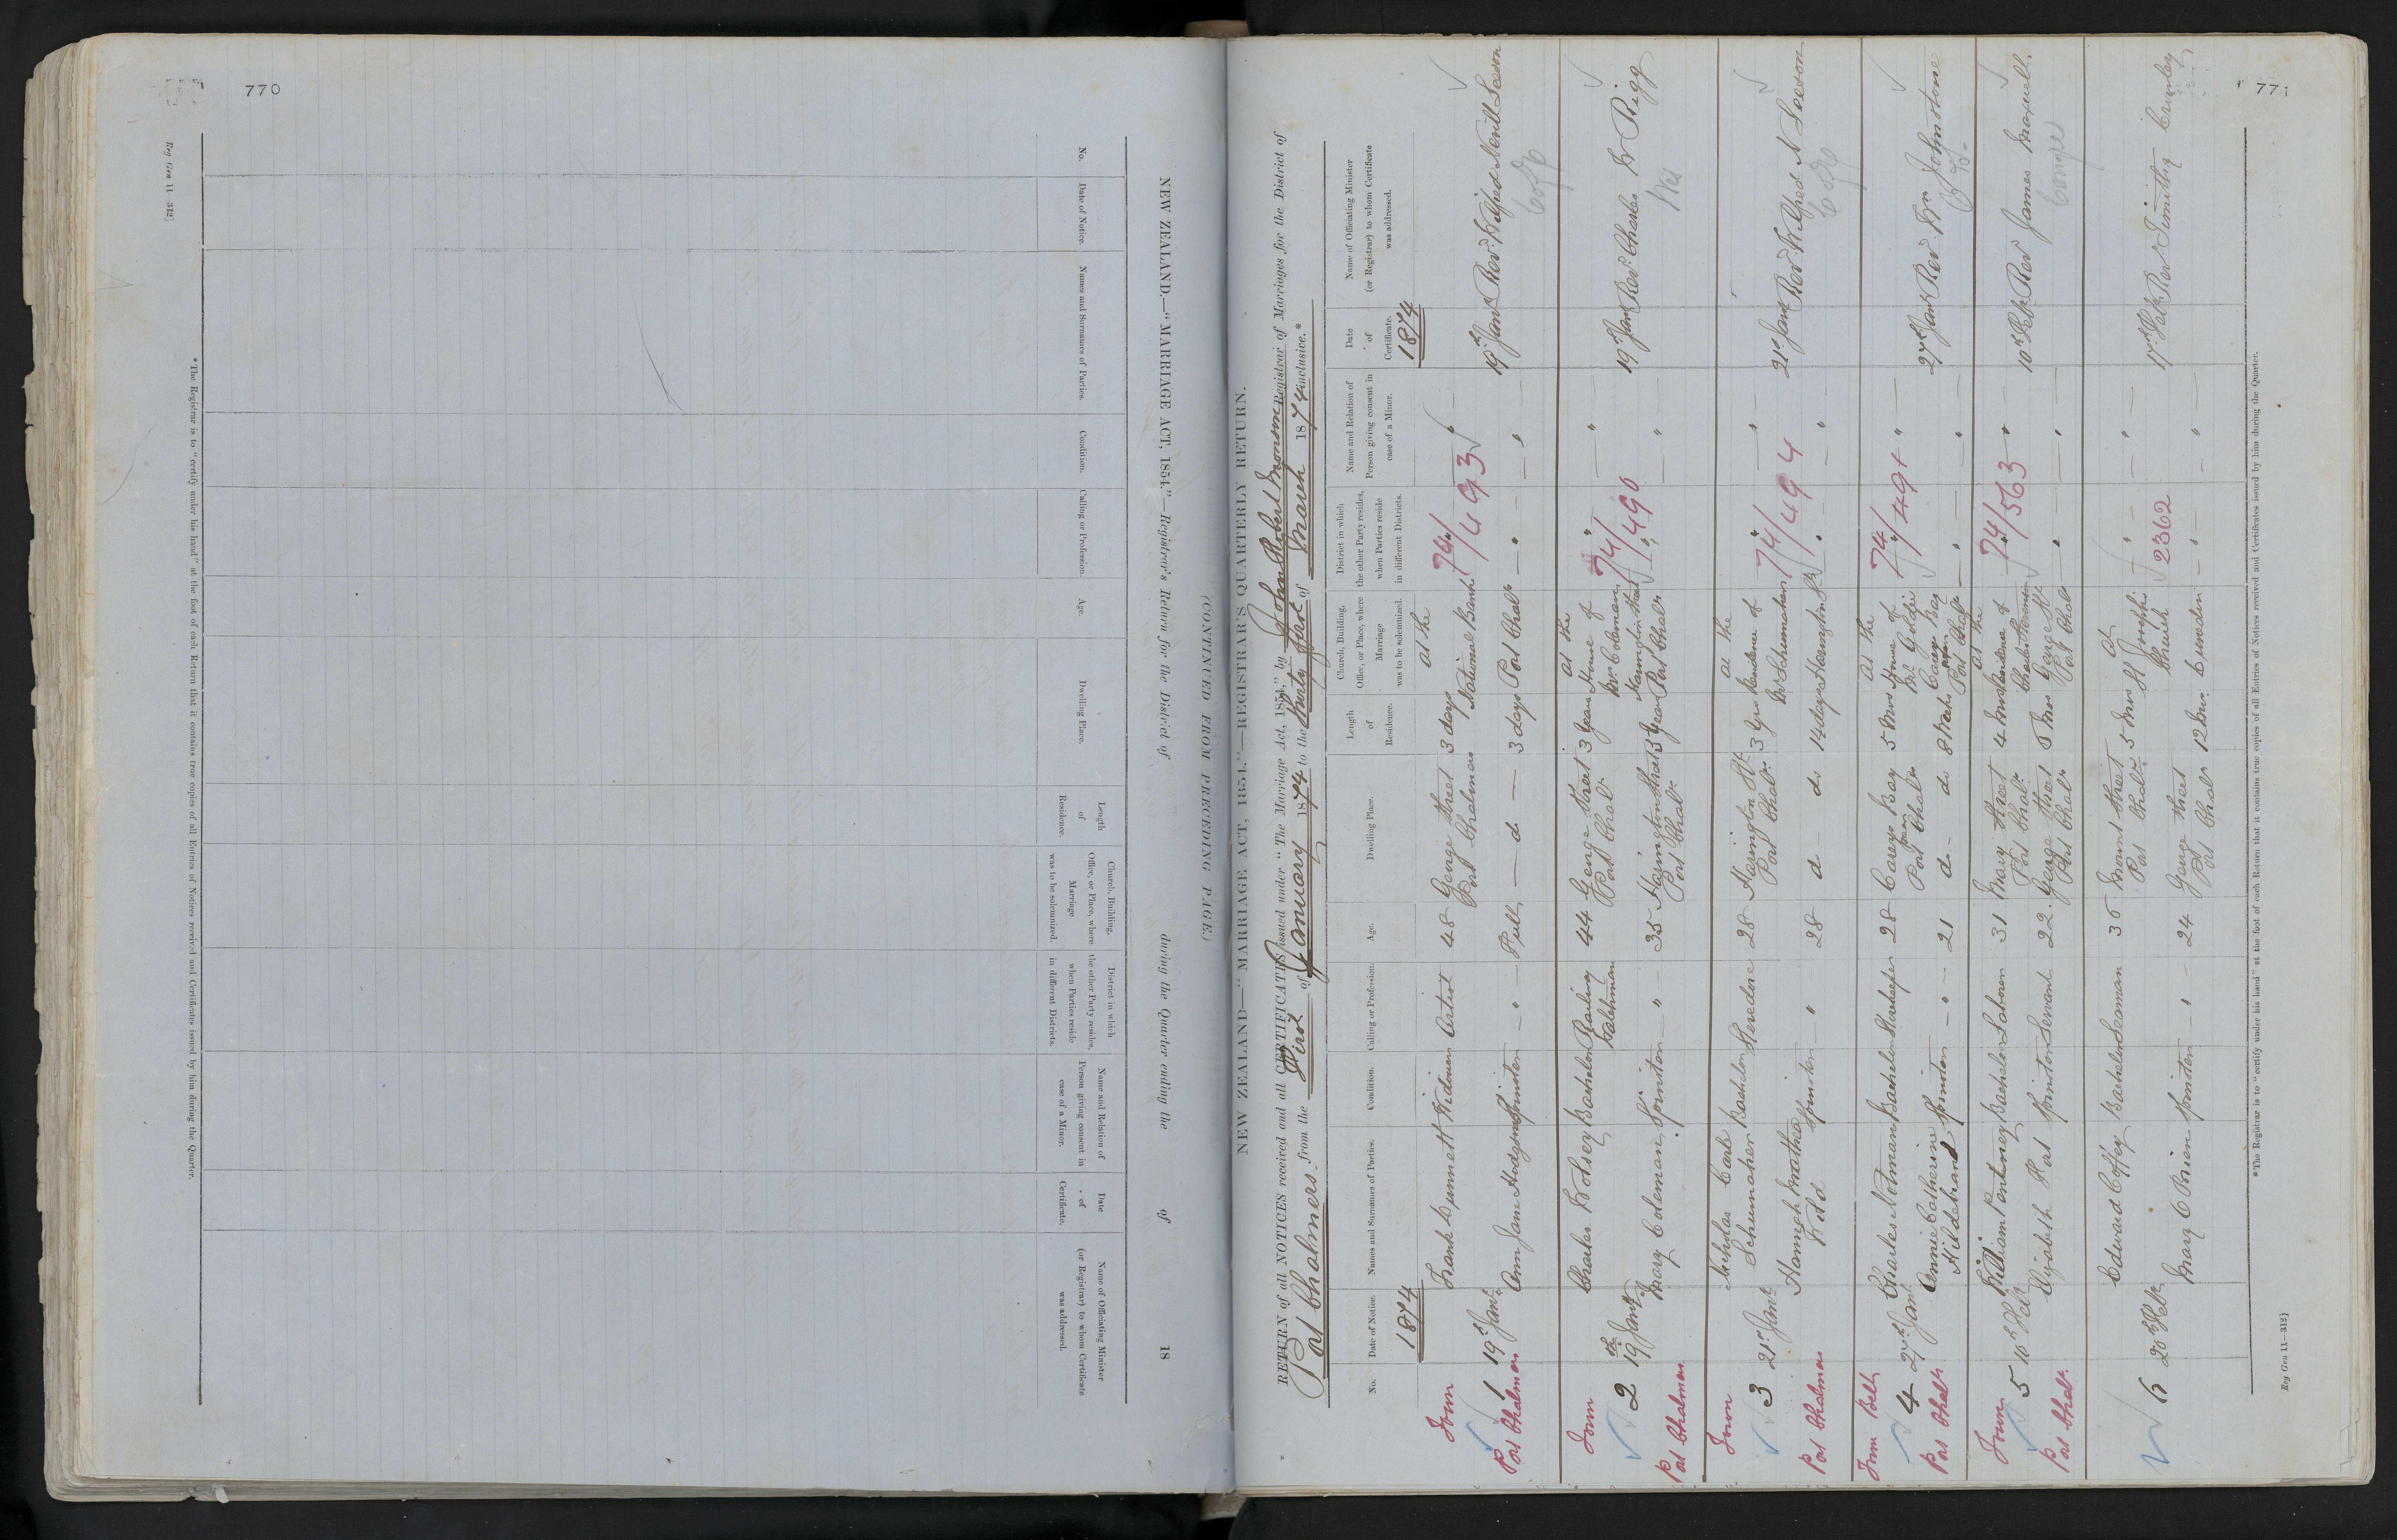 770
Reg Gen 11—312]
NEW ZEALAND.—"MARRIAGE ACT, 1854."—Registrar's Return for the District of during the Quarter ending the of 18
No.
Date of Notice.
Names and Surnames of Parties.
Condition.
Calling or Profession.
Age.
Dwelling Place.
Length
of
Residence.
Church, Building,
Office, or Place, where
Marriage
was to be solemnized.
District in which
the other Party resides,
when Parties reside
in different Districts.
Name and Relation of
Person giving consent in
case of a Minor.
Date
of
Certificate.
Name of Officiating Minister
(or Registrar) to whom Certificate
was addressed.
*The Registrar is to "certify under his hand" at the foot of each Return that it contains true copies of all Entries of Notices received and Certificates issued by him during the Quarter.
(CONTINUED FROM PRECEDING PAGE.)
771
NEW ZEALAND—"MARRIAGE ACT, 1854."—REGISTRAR'S QUARTERLY RETURN.
RETURN of all NOTICES received and all CERTIFICATES issued under "The Marriage Act, 1854," by John Robert Monson Registrar of Marriages for the District of
Port Chalmers from the First of January 1874 to the thirty first of March 1874 inclusive.*
No.
Date of Notice.
Names and Surnames of Parties.
Condition.
Calling or Profession.
Age.
Dwelling Place.
Length
of
Residence.
Church, Building,
Office, or Place, where
Marriage
was to be solemnized.
District in which
the other Party resides,
when Parties reside
in different Districts.
Name and Relation of
Person giving consent in
case of a Minor.
Date
of
Certificate.
Name of Officiating Minister
(or Registrar) to whom Certificate
was addressed.
1874
1874
Town
Port Chalmers
1 19th Jany
Frank Dunnett Widower Artist 48 George Street Port Chalmers 3 days
Ann Jane Hodgson Spinster " Full do 3 days
At the National Bank Port Chalrs
74/493
19th Jany Revd. Wilfred Nevill Leeson
C of E
Town
Port Chalmers
2 19th Jany
Charles Wolsey Bachelor Railway 44 George Street Port Chalrs 3 years
Mary Coleman Spinster " 35 Harrington Street Port Chalrs 3 years
At the House of Mr Coleman Harrington Street Port Chalrs
74/490
19th Jany Revd. Charles W Rigg
Wes
Town
Port Chalmers
3 21st Jany
Nicholas Carl Schumacher Bachelor Stevedore 28 Harrington St Port Chalrs 3 yrs
Hannah Martha Wild Spinster " 28 do do 14 days
At the Residence of Mr Schumacher Harrington St
74/494
21st Jany Revd. Wilfred N Leeson
C of E
Town Belt
Port Chalrs
4 27th Jany
Charles Notman Bachelor Storekeeper 28 Careys Bay near Port Chalrs 5 Mos
Annie Catherine Hildebrand Spinster " 21 do do 8 Weeks
At the House of Mr Goldie Careys Bay near Port Chalrs
74/491
27th Jany Rev. Wm Johnstone
Town
Port Chalrs
5 10th Feby
William Pentney Bachelor Laborer 31 Mary Street Port Chalrs 4 Mos
Elizabeth Port Spinster Servant 22 George Street Port Chalrs 8 Mos
At the Residence of George St Port Chalrs
74/563
10th Feby Rev James Maxwell
6 20th Feby
Edward Coffey Bachelor Seaman 36 Mount Street Port Chalrs 5 Mos
Mary O'Brien Spinster " 24 George Street Port Chalrs 12 Mos
At St Josephs Church Dunedin
2362
17th Feby Rev Timothy Crowley
*The Registrar is to "certify under his hand" at the foot of each Return that it contains true copies of all Entries of Notices received and Certificates issued by him during the Quarter.
Reg Gen 11—312]